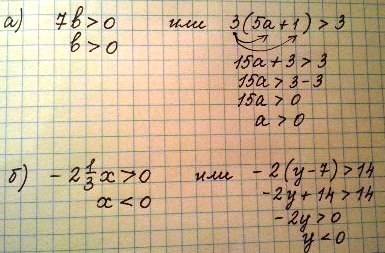 а) 7b > 0 или 3(5a + 1) > 3
b > 0
15a + 3 > 3
15a > 3 - 3
15a > 0
a > 0
б) - 2 1/3 x > 0 или - 2(y - 7) > 14
x < 0
-2y + 14 > 14
-2y > 0
y < 0